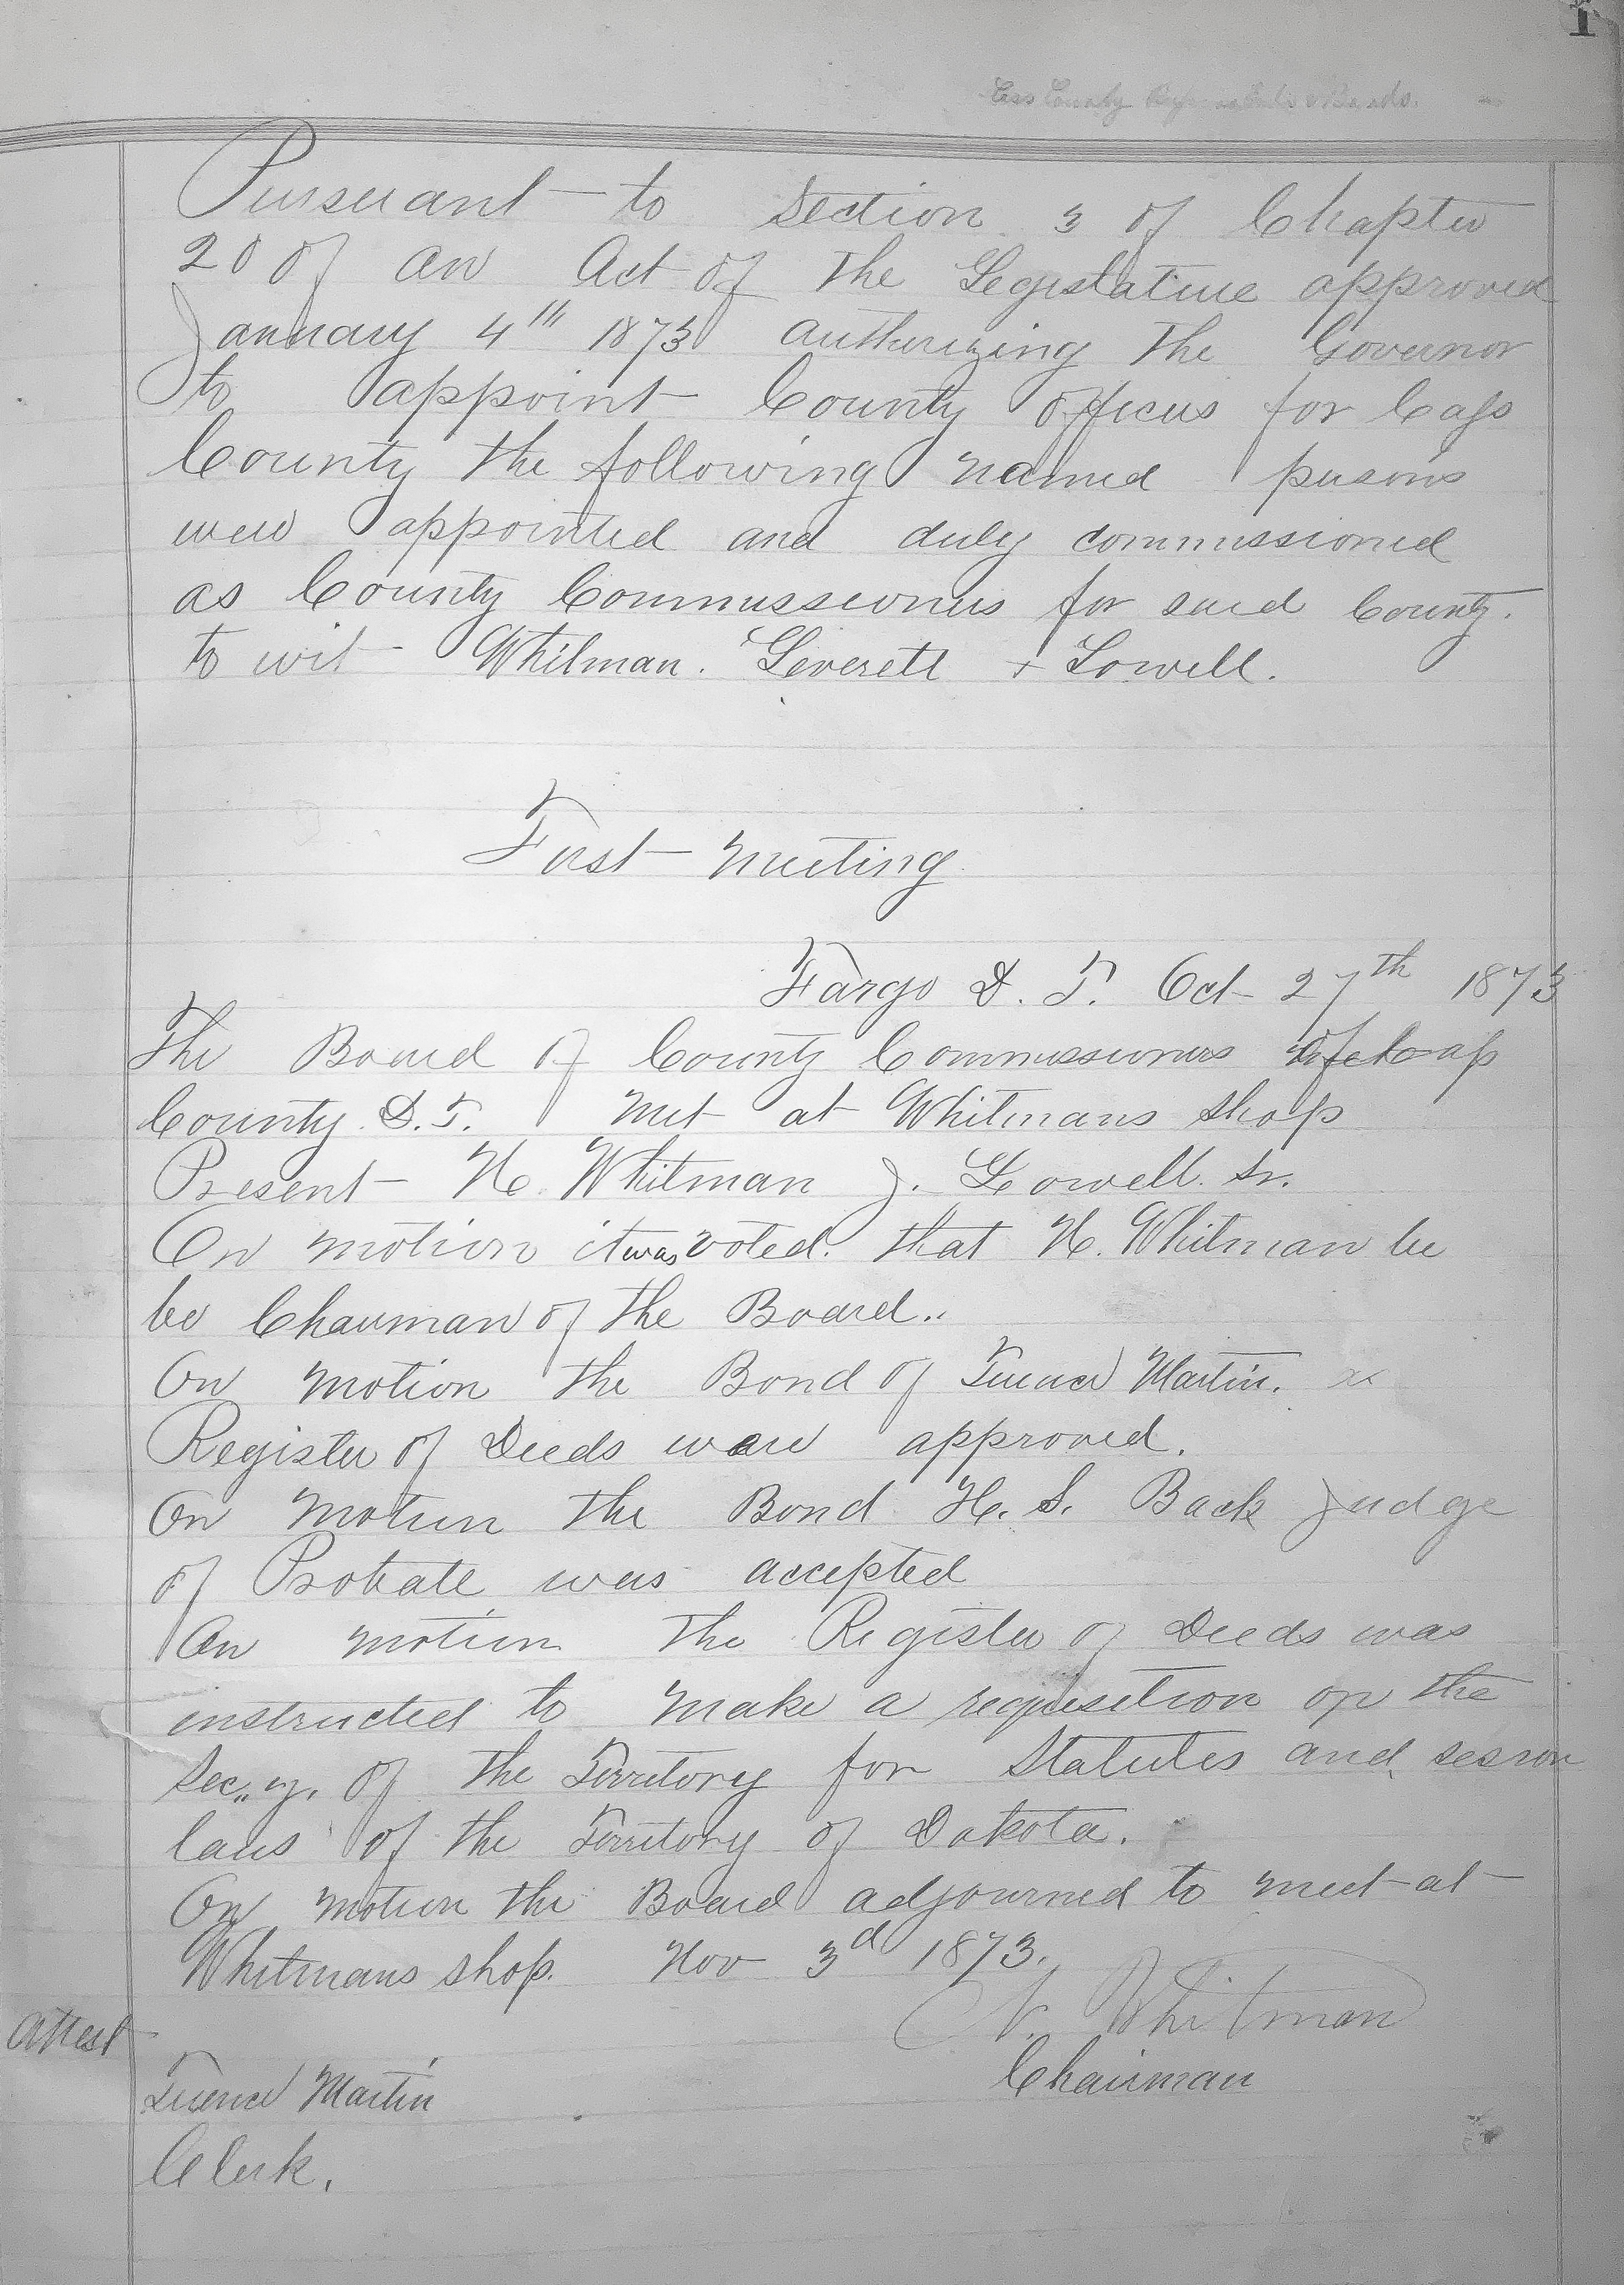 1
Cass County
Pursuant to Section 3 of Chapter
20 of an Act of the Legislature approved
January 4th 1873 authorizing the Governor
to appoint County Officers for Cass
County the following named persons
were appointed and duly commissioned
as County Commissioners for said County.
to wit Whitman. Leverett + Lowell.
First Meeting
Fargo D. T. Oct 27th 1873
The Board of County Commissioners of Cass
County D.T. Met at Whitmans shop
Present N. Whitman J. Lowell. Sr.
On motion it was voted. that N. Whitman be
be Chairman of the Board..
On motion the Bond of Terence Martin.
Register of Deeds were approved.
On Motion the Bond H. S. Back Judge
of Probate was accepted
On motion the Register of Deeds was
instructed to make a requisition on the
Sec"y. of the Territory for Statutes and sesion
laws of the Territory of Dakota.
On motion the Board adjourned to meet at
Whitmans shop. Nov 3d 1873.
N. Whitman
Attest
Chairman
Terence Martin
Clerk.